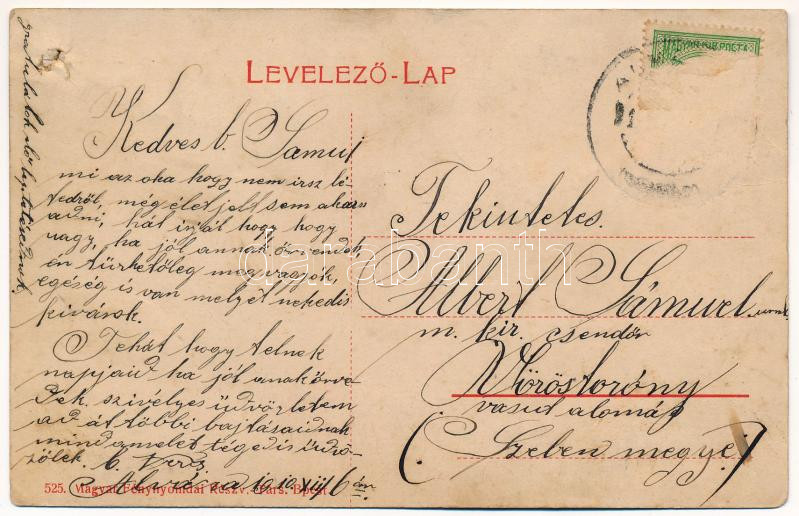 LEVELEZŐ-LAP
MAGYAR KIR. POSTA
Kedves b. Samu!
mi az oka hogy nem irsz lé-
tedről, még élet jelt sem akarsz
adni, hát irjál hogy hogy
vagy, ha jól annak örvendek,
én türhetőleg meg vagyok,
egéség is van melyet nekedis
kivánok.
Tehát hogy telnek
napjaid ha jól anak örve
dek. szivélyes üdvözletem
ad át többi bajtásaidnak
mind amelet tégedis üdvö-
zölek b.
1910 XII/6 án
gratulálok
Tekintetes.
Albert Sámuel urnk.
m. kir. csendőr
Vöröstorony
vasut alomás
(Szeben megye)
525. Magyar Fénynyomdai Részv.-Társ. Bpest
darabanth